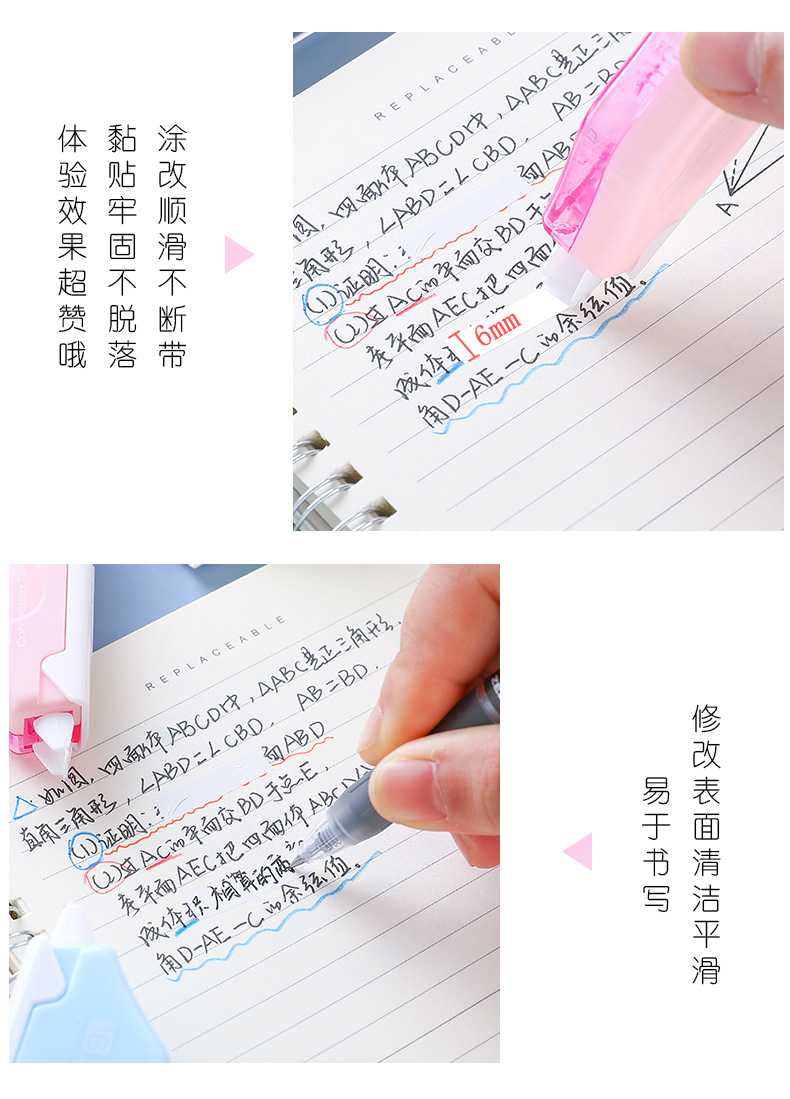 涂改顺滑不断带
黏贴牢固不脱落
体验效果超赞哦
REPLACEABL
圆,四面体ABCD中,△ABC是正三角
三角形,∠ABD=∠CBD. AB=BD
(1)证明:
面ABD
(2)过AC的平面交BD于点
若平面AEC把四面体
成体积
6mm
角D-AE-C的余弦值。
A
REPLACEABLE
△如图,四面体ABCD中,△ABC是正三角形,
直角三角形,∠ABD=∠CBD. AB=BD.
(1)证明:
面ABD
(2)过AC的平面交BD于点E,
若平面AEC把四面体ABCD
成体积相算的两
角D-AE-C的余弦值。
修改表面清洁平滑
易于书写